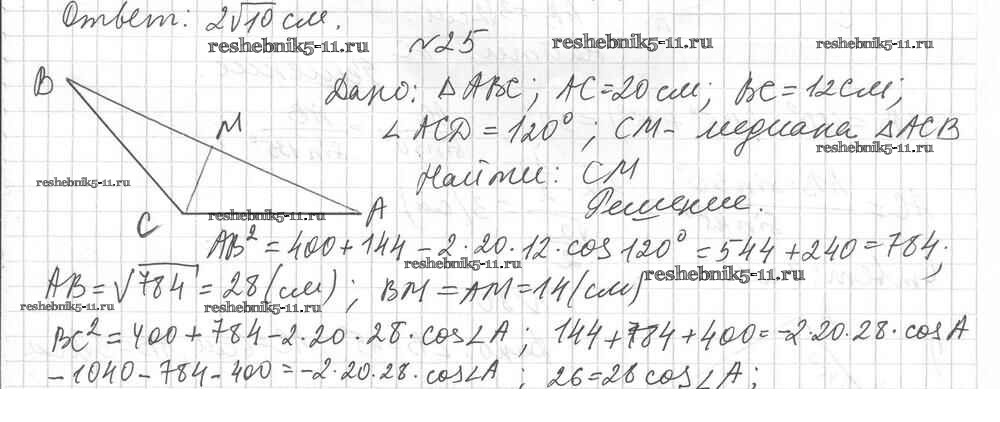 Ответ: 2√10 см.
reshebnik5-11.ru reshebnik5-11.ru reshebnik5-11.ru
№25
B
Дано: △ABC; AC=20см; BC=12см;
M
∠ACD=120°; CM- медиана △ACB
reshebnik5-11.ru
Найти: CM
reshebnik5-11.ru
Решение.
C
reshebnik5-11.ru
A
AB²=400+144-2·20·12·cos120°=544+240=784;
reshebnik5-11.ru reshebnik5-11.ru
AB=√784=28(см); BM=AM=14(см)
reshebnik5-11.ru reshebnik5-11.ru reshebnik5-11.ru
BC²=400+784-2·20·28·cos∠A; 144+784+400=-2·20·28·cosA
-1040-784-400=-2·20·28·cos∠A; 26=28cos∠A;